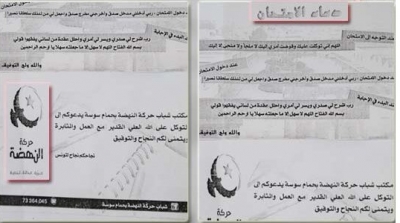 دخول الامتحان : ربي أدخلني مدخل صدق وأخرجني مخرج صدق واجعل لي من لدنك سلطانا نصيرا
رب اشرح لي صدري ويسر لي أمري واحلل عقدة من لساني يفقهوا قولي
بسم الله الفتاح اللهم لا سهل إلا ما جعلته سهلا يا ارحم الراحمين
والله ولي التوفيق
مكتب شباب حركة النهضة بحمام سوسة يدعوكم إلى
التوكل على الله العلي القدير مع العمل والمثابرة
ويتمنى لكم النجاح والتوفيق
نجاحكم نجاح لتونس
حركة
النهضة
73 364.045
مكتب شباب حركة النهضة بحمام سوسة
دعاء الامتحان
عند التوجه إلى الامتحان
اللهم إني توكلت عليك وفوضت أمري إليك لا ملجأ ولا منجى إلا إليك
عند دخول الامتحان
رب اشرح لي صدري ويسر لي أمري واحلل عقدة من لساني يفقهوا قولي
بسم الله الفتاح اللهم لا سهل إلا ما جعلته سهلا يا ارحم الراحمين
والله ولي التوفيق
مكتب شباب حركة النهضة بحمام سوسة يدعوكم إلى
التوكل على الله العلي القدير مع العمل والمثابرة
ويتمنى لكم النجاح والتوفيق
حركة